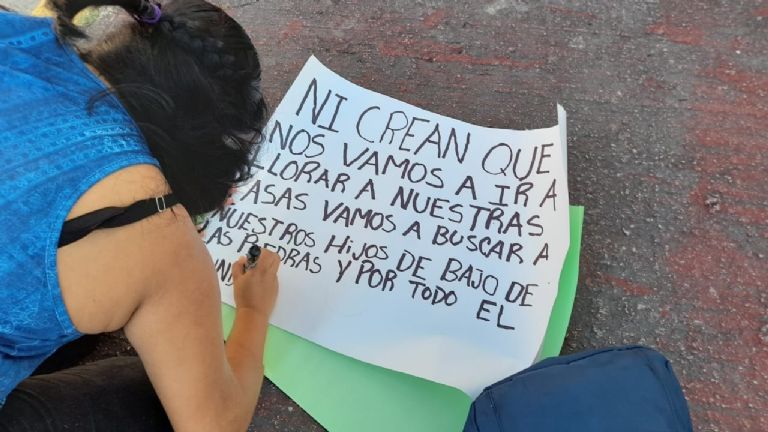 NI CREAN QUE
NOS VAMOS A IR A
LLORAR A NUESTRAS
ASAS VAMOS A BUSCAR A
NUESTROS HIJOS DE BAJO DE
AS PIEDRAS Y POR TODO EL